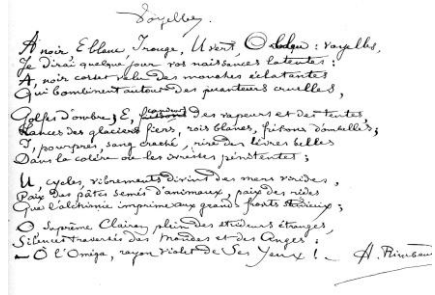 Voyelles
A noir, E blanc, I rouge, U vert, O bleu : voyelles,
Je dirai quelque jour vos naissances latentes :
A, noir corset velu des mouches éclatantes
Qui bombinent autour des puanteurs cruelles,
Golfes d'ombre; E, candeurs des vapeurs et des tentes,
Lances des glaciers fiers, rois blancs, frissons d'ombelles;
I, pourpres, sang craché, rire des lèvres belles
Dans la colère ou les ivresses pénitentes;
U, cycles, vibrements divins des mers virides,
Paix des pâtis semés d'animaux, paix des rides
Que l'alchimie imprime aux grands fronts studieux;
O, suprême Clairon plein des strideurs étranges,
Silences traversés des Mondes et des Anges :
– O l'Oméga, rayon violet de Ses Yeux ! –
A. Rimbaud